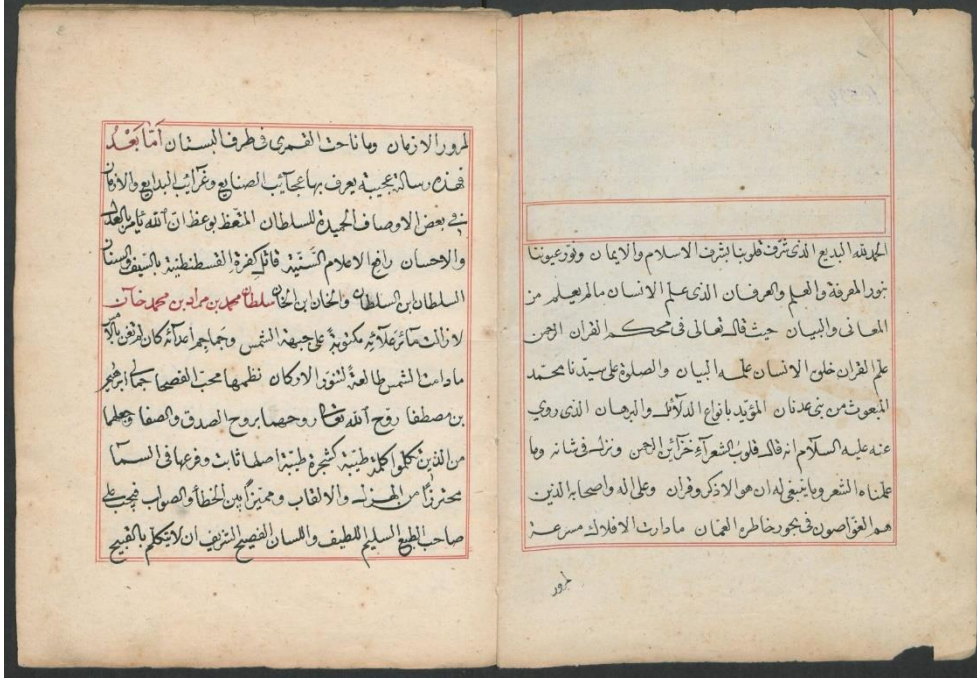 الحمد لله البديع الذى شرف قلوبنا بشرف الاسلام والايمان ونور عيوننا
بنور المعرفة والعلم والعرفان الذى علم الانسان مالم يعلم من
المعانى والبيان حيث قال تعالى فى محكم القران الرحمن
علم القران خلق الانسان علمه البيان والصلوة على سيدنا محمد
المبعوث من بنى عدنان المؤيد بانواع الدلائل والبرهان الذى روي
عنه عليه السلام انه قال قلوب الشعرآء خزائن الرحمن ونزل فى شانه وما
علمناه الشعر وما ينبغى له ان هو الا ذكر وقران وعلى اله واصحابه الذين
هم الغواصون فى بحور خاطره العمان مادارت الافلاك مسرعة
لمرور
لمرور الازمان وما ناحت القمرى فى طرف البستان اما بعد
فهذه رسالة عجيبة يعرف بها عجآئب الصنايع وغرآئب البدايع والاوزان
فى بعض الاوصاف الحميدة للسلطان المتعظ بوعظ ان الله يأمر بالعدل
والاحسان رافع الاعلام السنية قاتل كفرة القسطنطنية بالسيف والسنان
السلطان ابن السلطان والخان ابن الخان سلطان محمد بن مراد بن محمد خان
لازالت مآثر علائه مكتوبة على جبهة الشمس وجماجم اعدآئه كان لم تغن بالامس
مادامت الشمس طالعة لتنور الاركان نظمها محب الفصحا جمالى ابرهيم
بن مصطفا روح الله تعالى روحهما بروح الصدق والصفا وجعلهما
من الذين تكلموا كلمة طيبة كشجرة طيبة اصلها ثابت وفرعها فى السمآ
محترزا من الهزل والالقاب ومميزا بين الخطأ والصواب فيجب على
صاحب الطبع السليم اللطيف واللسان الفصيح الشريف ان لا يتكلم بالقبيح